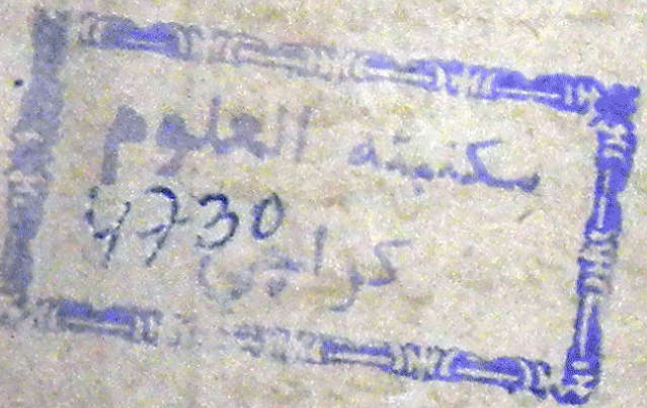 مكتبته العلوم
4730
كراچی